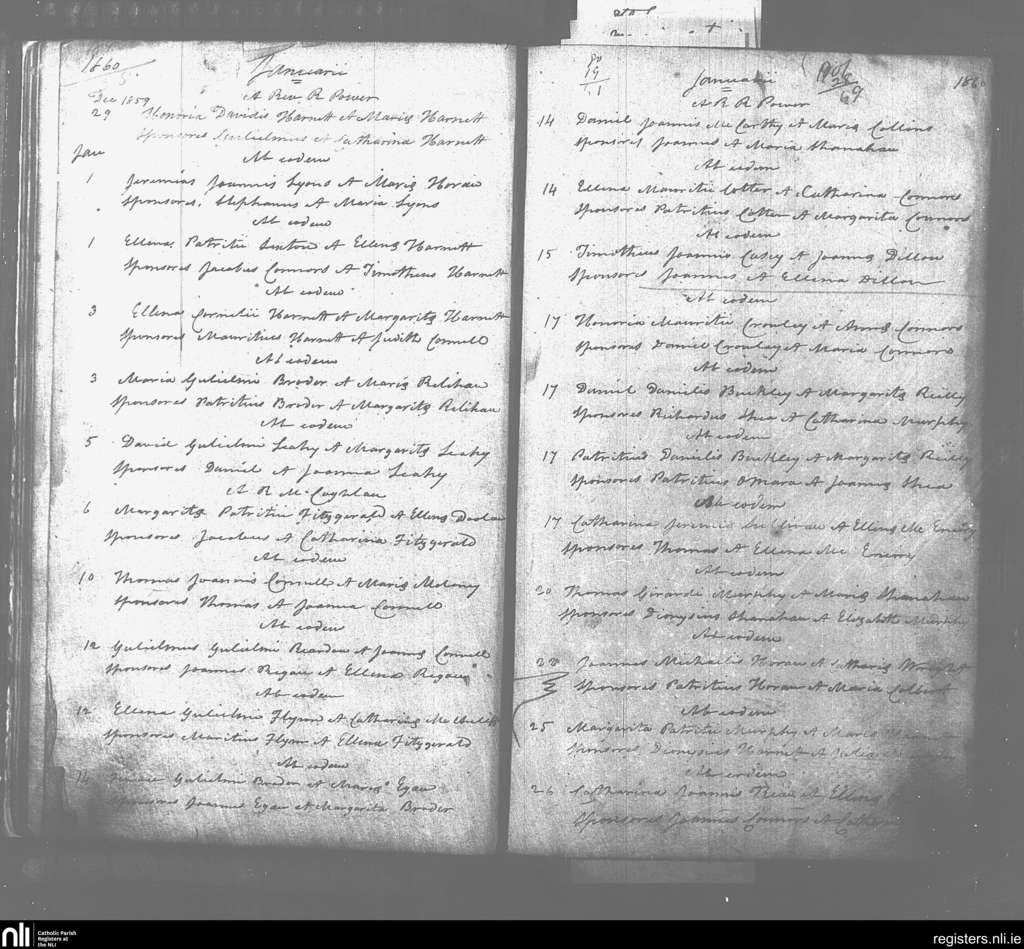 1860
Januarii
A Rev. R Power
Dec 1859
29 Honoria Davidis Harnett et Mariæ Harnett
Sponsores Gulielmus et Catharina Harnett
Ab eodem
Jan
1 Jeremias Joannis Lyons et Mariæ Horan
Sponsores, Stephanus et Maria Lyons
Ab eodem
1 Ellena Patritii et Ellenæ Harnett
Sponsores Jacobus Connors et Timotheus Harnett
Ab eodem
3 Ellena Cornelii Harnett et Margaritæ Harnett
Sponsores Mauritius Harnett et Judith Connell
Ab eodem
3 Maria Gulielmi Broder et Mariæ Relihan
Sponsores Patritius Broder et Margarita Relihan
Ab eodem
5 David Gulielmi Leahy et Margaritæ Leahy
Sponsores Daniel et Joanna Leahy
A R McCoghlan
6 Margarita Patritii Fitzgerald et Ellenæ
Sponsores Jacobus et Catharina Fitzgerald
Ab eodem
10 Thomas Joannis Connell et Mariæ Moloney
Sponsores Thomas et Joanna Connell
Ab eodem
12 Gulielmus Gulielmi Reardon et Joannæ Connell
Sponsores Joannes Regan et Ellena Regan
Ab eodem
12 Ellena Gulielmi Flynn et Catharinæ
Sponsores Maritius Flynn et Ellena Fitzgerald
Ab eodem
Gulielmi Broder et Mariæ Egan
Sponsores Joannes Egan et Margarita Broder
Januarii
1860
A R R Power
14 Daniel Joannis McCarthy et Mariæ Collins
Sponsores Joannes et Maria Shanahan
Ab eodem
14 Ellena Mauritii Cotter et Catharina Connors
Sponsores Patritius Cotter et Margarita Connors
Ab eodem
15 Timotheus Joannis Casey et Joannæ Dillon
Sponsores Joannes et Ellena Dillon
Ab eodem
17 Honoria Mauritii Crowley et Annæ Connors
Sponsores Daniel Crowley et Maria Connors
Ab eodem
17 Daniel Danielis Buckley et Margaritæ Reilly
Sponsores Richardus Shea et Catharina Murphy
Ab eodem
17 Patritius Danielis Buckley et Margaritæ Reilly
Sponsores Patritius OMara et Joanna Shea
Ab eodem
17 Catharina Jeremiæ Sullivan et Ellenæ Mc Eniry
Sponsores Thomas et Ellena Mc Eniry
Ab eodem
20 Thomas Girardi Murphy et Mariæ Shanahan
Sponsores Dionysius Shanahan et Elizabeth Murphy
Ab eodem
Joannes Michaelis Horan et Catharinæ
Sponsores Patritius Horan et Maria Colbert
Ab eodem
25 Margarita Patritii Murphy et Mariæ
Sponsores Dionysius Harnett et
Ab eodem
26 Catharina Joannis et Ellenæ
Sponsores Joannes Connors et
nli Catholic Parish
Registers at
the NLI
registers.nli.ie